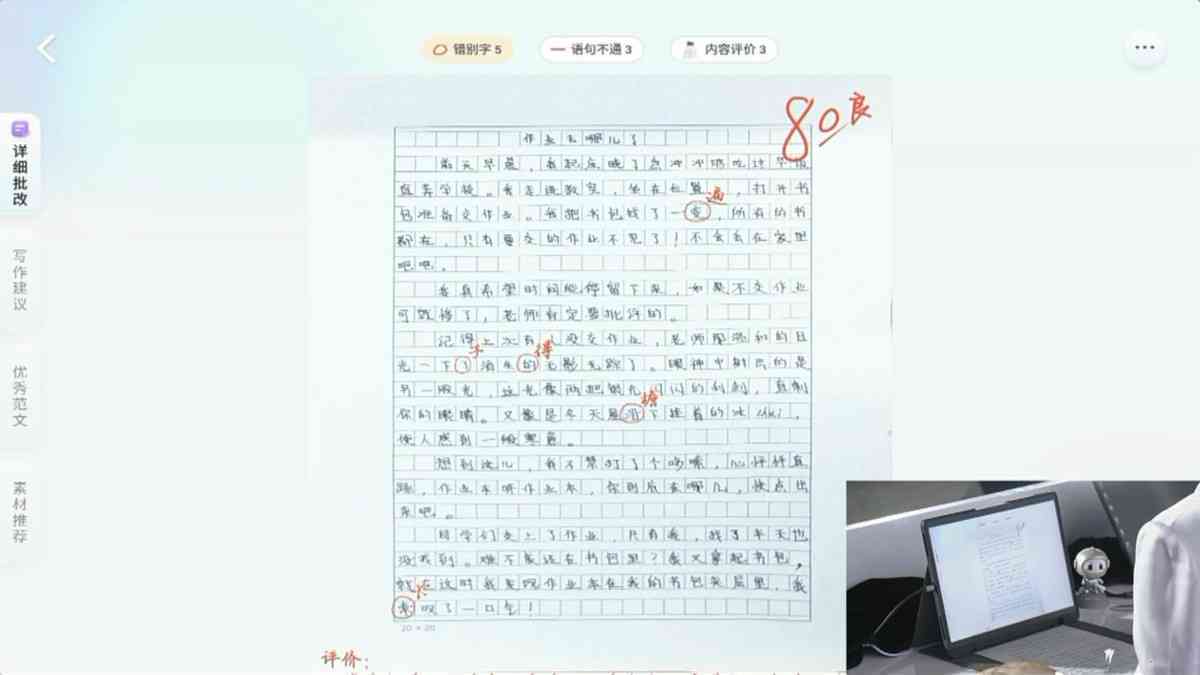 错别字 5
语句不通 3
内容评价 3
详细批改
写作建议
优秀范文
素材推荐
80良
作业去哪儿了
前天早晨，我起床晚了急冲冲地吃过早饭
直奔学校。我走进教室，坐在位置，打开书
遍
包准备交作业。我把书包找了一变，所有的书
都在，只有要交的作业不见了！不会丢在家里
吧吧，
我真希望时间能停留下来，如果不交作业
可就惨了，老师肯定要批评的。
记得上次有人没交作业，老师那温和的目
得
光一下了消失的无影无踪了。眼神中射出的是
另一股光，这光像两把银光闪闪的利剑，直刺
你的眼睛。又像是冬天屋
下挂着的冰
使人感到一般寒意。
想到这儿，我不禁打了个哆嗦，心怦怦直
跳，作业本呀作业本，你到底去哪儿，快点出
来吧。
同学们交上了作业，只有我，找了半天也
没找到。难不成还在书包里？我又拿起书包，
就在这时我发现作业本在我的书包夹层里，我
叹了一口气！
20 × 20
评价：